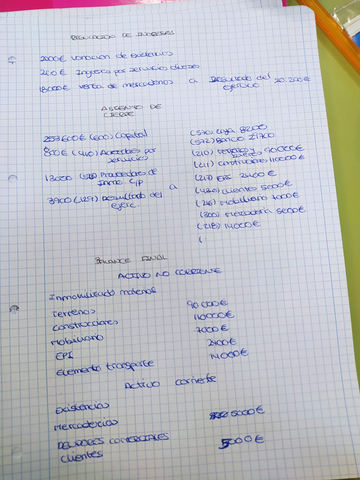 REGULARIZACIÓN DE INGRESOS
2000€ Variación de existencias
200€ Ingresos por servicios diversos
18000€ venta de mercaderías a Resultado del ejercicio 20.200€
ASIENTO DE CIERRE
(100) Capital (570) Caja 8200
(572) Banco
800€ (410) Acreedores por servicios (210) Terrenos y bienes 90000€
(211) Construcciones 110000€
13000 Proveedores de Inmov C/P (217) EPI 2400€
a (430) Clientes 5000€
3900 (129) Resultado del ejerc. (216) Mobiliario 7000€
(300) Mercadería 5000€
(218) 14000€
(
BALANCE FINAL
ACTIVO NO CORRIENTE
Inmovilizado material
Terrenos 90.000€
Construcciones 110000€
Mobiliario 7000€
EPI 2400€
Elemento transporte 14000€
Activo corriente
Existencias
Mercaderías 5000€
DEUDORES COMERCIALES
Clientes 5000€